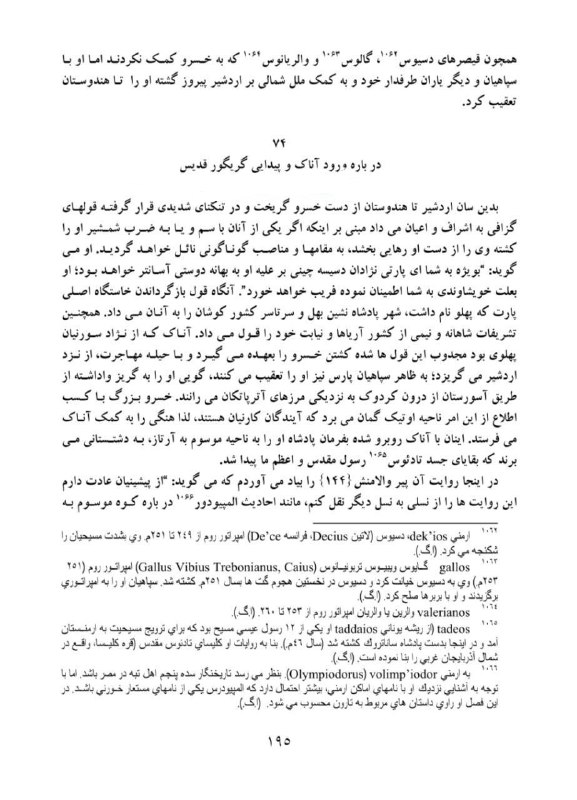 همچون قیصرهای دسیوس۱۰۶۲، گالوس۱۰۶۳ و والریانوس۱۰۶۴ که به خسرو کمک نکردند اما او با
سپاهیان و دیگر یاران طرفدار خود و به کمک ملل شمالی بر اردشیر پیروز گشته او را تا هندوستان
تعقیب کرد.
۷۴
در باره ورود آناک و پیدایی گریگور قدیس
بدین سان اردشیر تا هندوستان از دست خسرو گریخت و در تنکتای شدیدی قرار گرفته قولهای
گزافی به اشراف و اعیان می داد مبنی بر اینکه اگر یکی از آنان با سم و یا به ضرب شمشیر او را
کشته وی را از دست او رهایی بخشد، به مقامها و مناصب گوناگونی نائل خواهد گردید. او می
گوید: "بویژه به شما ای پارتی نژادان دسیسه چینی بر علیه او به بهانه دوستی آسانتر خواهد بود؛ او
بعلت خویشاوندی به شما اطمینان نموده فریب خواهد خورد". آنگاه قول بازگرداندن خاستگاه اصلی
پارت که پهلو نام داشت، شهر پادشاه نشین بهل و سرتاسر کشور کوشان را به آنان می داد. همچنین
تشریفات شاهانه و نیمی از کشور آریاها و نیابت خود را قول می داد. آناک که از نژاد سورنیان
پهلوی بود مجذوب این قول ها شده کشتن خسرو را بعهده می گیرد و با حیله مهاجرت، از نزد
اردشیر می گریزد؛ به ظاهر سپاهیان پارس نیز او را تعقیب می کنند، گویی او را به گریز واداشته از
طریق آسورستان از درون کردوک به نزدیکی مرزهای آترپاتکان می رانند. خسرو بزرگ با کسب
اطلاع از این امر ناحیه اوتیک گمان می برد که آیندگان کارنیان هستند، لذا هنگی را به کمک آناک
می فرستد. اینان با آناک روبرو شده بفرمان پادشاه او را به ناحیه موسوم به آرتاز، به دشتستانی می
برند که بقایای جسد تادئوس۱۰۶۵ رسول مقدس و اعظم ما پیدا شد.
در اینجا روایت آن پیر والامنش {۱۴۴} را بیاد می آوردم که می گوید: "از پیشنیان عادت دارم
این روایت ها را از نسلی به نسل دیگر نقل کنم، مانند احادیث المپیودور۱۰۶۶ در باره کوه موسوم به
۱۰۶۲ ارمني dek'ios، دسیوس (لاتین Decius، فرانسه De'ce) امپراتور روم از ۲۴۹ تا ۲۵۱م. وي بشدت مسیحیان را
شکنجه مي کرد. (ا.گ.).
۱۰۶۳ gallos گـایوس ویبیـوس تربونیـانوس (Gallus Vibius Trebonianus, Caius) امپراتـور روم (۲۵۱
۲۵۳م.) وي به دسیوس خیانت کرد و دسیوس در نخستین هجوم گت ها بسال ۲۵۱م. کشته شد. سپاهیان او را به امپراتوري
برگزیدند و او با بربرها صلح کرد. (ا.گ.).
۱۰۶۴ valerianos والرین یا والریان امپراتور روم از ۲۵۳ تا ۲۶۰. (ا.گ.).
۱۰۶۵ tadeos (از ریشه یوناني taddaios او یکي از ۱۲ رسول عیسي مسیح بود که براي ترویج مسیحیت به ارمنستان
آمد و در اینجا بدست پادشاه ساناتروک کشته شد (سال ۴۶م.). بنا به روایات او کلیساي تادئوس مقدس (قره کلیسا، واقع در
شمال آذربایجان غربي را بنا نموده است. (ا.گ.).
۱۰۶۶ به ارمني volimp'iodor (Olympiodorus). بنظر مي رسد تاریخنگار سده پنجم اهل تبه در مصر باشد. اما با
توجه به آشنایي نزدیك او با نامهاي اماکن ارمني، بیشتر احتمال دارد که المپیودرس یکي از نامهاي مستعار خورني باشد. در
این فصل او راوي داستان هاي مربوط به تارون محسوب مي شود. (ا.گ.).
۱۹۵